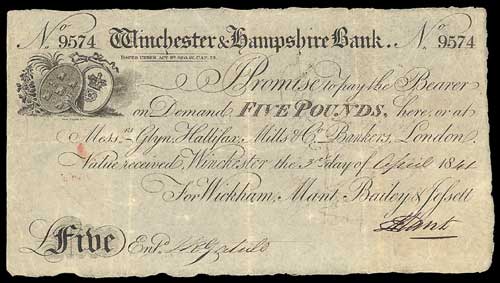 No. 9574 Winchester & Hampshire Bank. No. 9574
I Promise to pay the Bearer
on Demand FIVE POUNDS, here, or at
Messrs. Glyn, Hallifax, Mills & Co. Bankers, London.
Value received, Winchester the 3rd day of April 1841
For Wickham, Mant, Bailey & Jessett
£Five Entd.
Mant